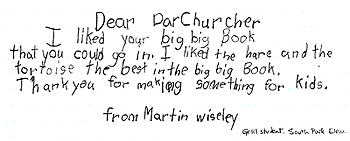 Dear DarChurcher
I liked your big big Book
that you could go in. I liked the hare and the
tortoise the best in the big big Book.
Thank you for making something for kids.
from Martin wiseley
student. South Park Elem.